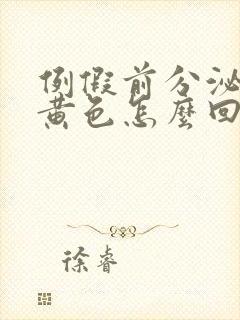 例假前分泌
黄色怎麼回
徐睿